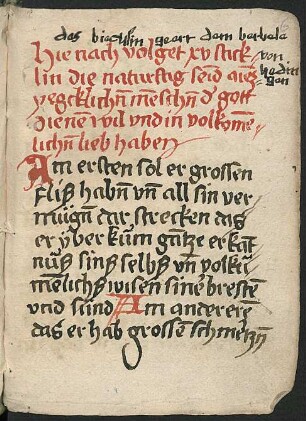 das biechlin geert dem berbele
von
hedin
gen
Hie nach volget xv stick
lin die naturftag seid aine
yegcklichn̄ mēschn̄ d gott
dienē wil vnd in volkomē
lichn̄ lieb haben
Am ersten sol er grossen
fliß habn̄ vn̄ all sin ver
muign̄ dar strecken das
er yber kum gantze erkāt
nuß sinß selbß vn̄ volkū
menlichß wisen sinē bresten
vnd sūnd Am anderen
das er hab grossen schmetzn̄